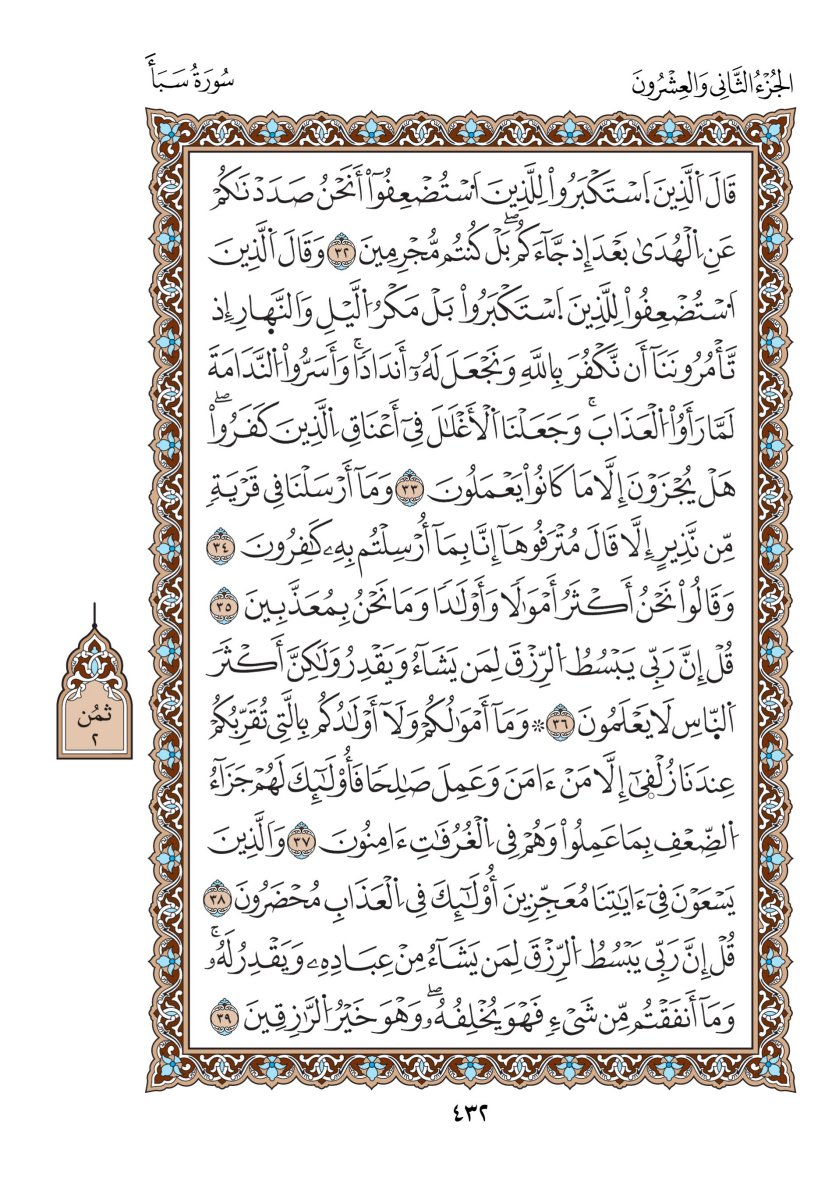 الجُزْءُ الثَّانِي وَالعِشْرُونَ
سُورَةُ سَبَأ
قَالَ اَ۬لَّذِينَ اَ۪سْتَكْبَرُواْ لِلَّذِينَ اَ۟سْتُضْعِفُوٓاْ أَنَحْنُ صَدَدْنَٰكُمْ
عَنِ اِ۬لْهُدَىٰ بَعْدَ إِذ جَّآءَكُمۖ بَلْ كُنتُم مُّجْرِمِينَ ٣٢ وَقَالَ اَ۬لَّذِينَ
اَ۟سْتُضْعِفُواْ لِلَّذِينَ اَ۪سْتَكْبَرُواْ بَلْ مَكْرُ اُ۬لَّيْلِ وَالنَّه۪ارِ إِذ
تَّأْمُرُونَنَآ أَن نَّكْفُرَ بِاللَّهِ وَنَجْعَلَ لَهُۥٓ أَندَادٗاۚ وَأَسَرُّواْ اُ۬لنَّدَامَةَ
لَمَّا رَأَوُاْ اُ۬لْعَذَابَۚ وَجَعَلْنَا اَ۬لْأَغْلَٰلَ فِيٓ أَعْنَاقِ اِ۬لَّذِينَ كَفَرُواْۖ
هَلْ يُجْزَوْنَ إِلَّا مَا كَانُواْ يَعْمَلُونَ ٣٣ وَمَآ أَرْسَلْنَا فِي قَرْيَةٖ
مِّن نَّذِيرٍ إِلَّا قَالَ مُتْرَفُوهَآ إِنَّا بِمَآ أُرْسِلْتُم بِهِۦ كَٰفِرُونَ ٣٤
وَقَالُواْ نَحْنُ أَكْثَرُ أَمْوَٰلٗا وَأَوْلَٰدٗا وَمَا نَحْنُ بِمُعَذَّبِينَ ٣٥
قُلْ إِنَّ رَبِّي يَبْسُطُ اُ۬لرِّزْقَ لِمَن يَشَآءُ وَيَقْدِرُ وَلَٰكِنَّ أَكْثَرَ
اَ۬لنّ۪اسِ لَا يَعْلَمُونَ ٣٦ ۞ وَمَآ أَمْوَٰلُكُمْ وَلَآ أَوْلَٰدُكُم بِالَّتِي تُقَرِّبُكُمْ
عِندَنَا زُلْف۪ىٰٓ إِلَّا مَنْ ءَامَنَ وَعَمِلَ صَٰلِحٗا فَأُوْلَٰٓئِكَ لَهُمْ جَزَآءُ
اُ۬لضِّعْفِ بِمَا عَمِلُواْ وَهُمْ فِي اِ۬لْغُرُفَٰتِ ءَامِنُونَ ٣٧ وَالَّذِينَ
يَسْعَوْنَ فِيٓ ءَايَٰتِنَا مُعَجِّزِينَ أُوْلَٰٓئِكَ فِي اِ۬لْعَذَابِ مُحْضَرُونَ ٣٨
قُلْ إِنَّ رَبِّي يَبْسُطُ اُ۬لرِّزْقَ لِمَن يَشَآءُ مِنْ عِبَادِهِۦ وَيَقْدِرُ لَهُۥۚ
وَمَآ أَنفَقْتُم مِّن شَيْءٖ فَهْوَ يُخْلِفُهُۥۖ وَهْوَ خَيْرُ اُ۬لرَّٰزِقِينَ ٣٩
ثمُن
٢
٤٣٢